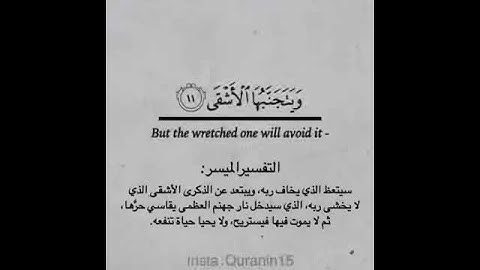 وَيَتَجَنَّبُهَا ٱلْأَشْقَى ١١
But the wretched one will avoid it -
التفسير الميسر:
سيتعظ الذي يخاف ربه، ويبتعد عن الذكرى الأشقى الذي
لا يخشى ربه، الذي سيدخل نار جهنم العظمى يقاسي حرَّها،
ثم لا يموت فيها فيستريح، ولا يحيا حياة تنفعه.
Insta:Quranin15